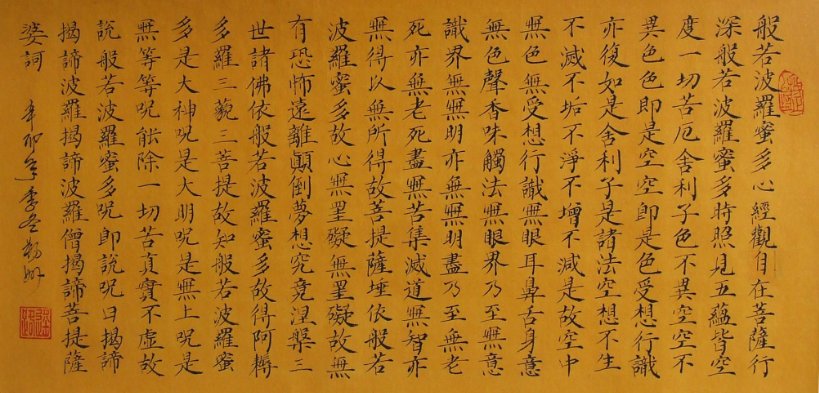 般若波羅蜜多心經觀自在菩薩行
深般若波羅蜜多時照見五蘊皆空
度一切苦厄舍利子色不異空空不
異色色即是空空即是色受想行識
亦復如是舍利子是諸法空想不生
不滅不垢不淨不增不減是故空中
無色無受想行識無眼耳鼻舌身意
無色聲香味觸法無眼界乃至無意
識界無無明亦無無明盡乃至無老
死亦無老死盡無苦集滅道無智亦
無得以無所得故菩提薩埵依般若
波羅蜜多故心無罣礙無罣礙故無
有恐怖遠離顛倒夢想究竟涅槃三
世諸佛依般若波羅蜜多故得阿耨
多羅三藐三菩提故知般若波羅蜜
多是大神呪是大明呪是無上呪是
無等等呪能除一切苦真實不虛故
說般若波羅蜜多呪即說呪曰揭諦
揭諦波羅揭諦波羅僧揭諦菩提薩
婆訶 辛卯年李